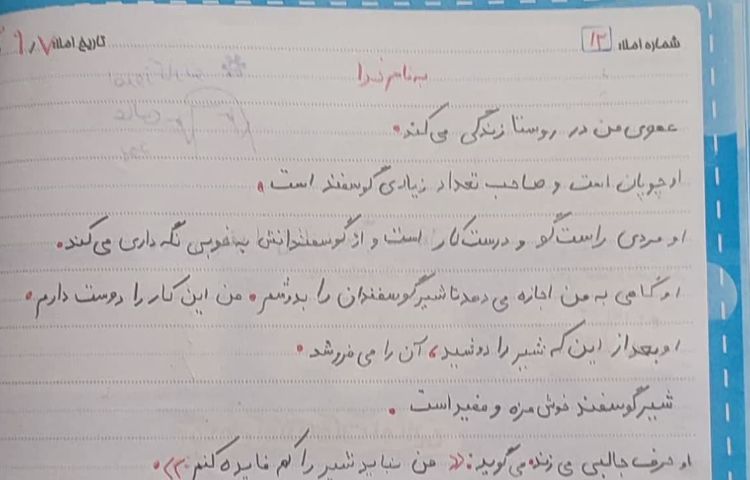 شماره املاء: ۱۲ تاریخ املاء:
به نام خدا
عموی من در روستا زندگی می‌کند.
او چوپان است و صاحب تعداد زیادی گوسفند است.
او مردی راست‌گو و درست‌کار است و از گوسفندانش به خوبی نگه داری می‌کند.
او گاهی به من اجازه می دهد تا شیر گوسفندان را بدوشم. من این کار را دوست دارم.
او بعد از این که شیر را دوشید، آن را می فروشد.
شیر گوسفند خوش مزه و مفید است.
او حرف جالبی می زند. می گوید: «من نباید شیر را کم فایده کنم.»